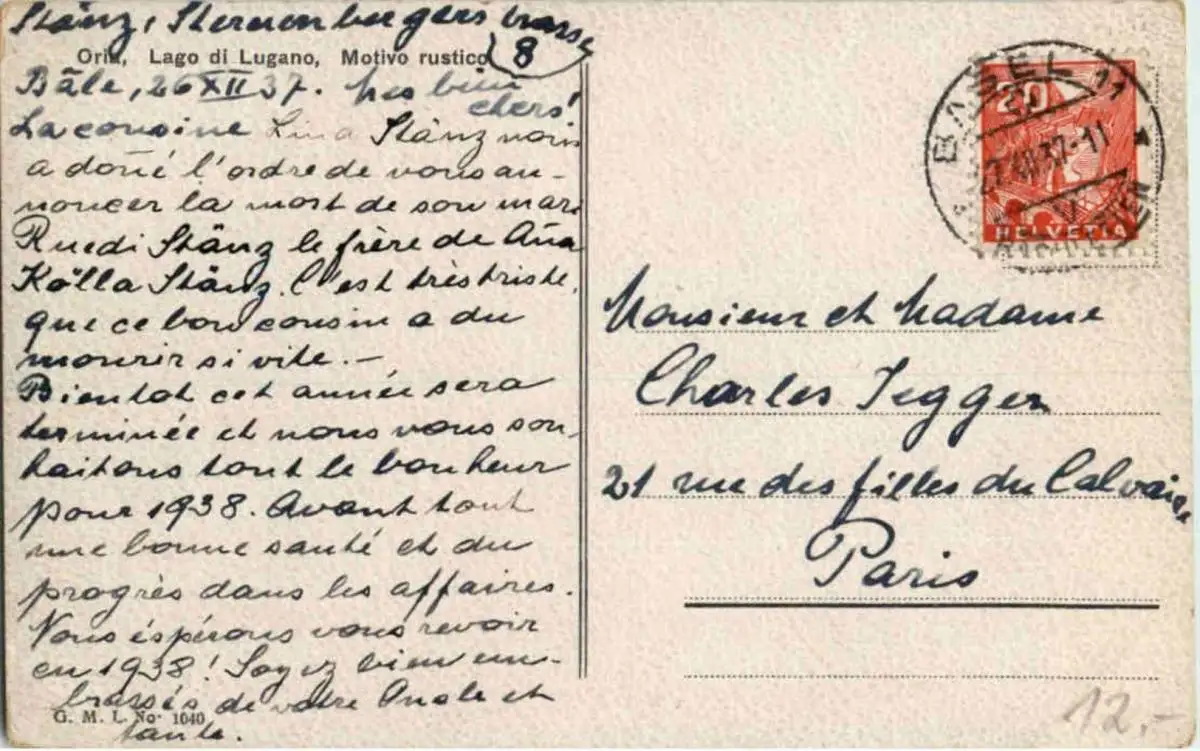 Stänz, Sternenbergerstrasse
8
Oria, Lago di Lugano, Motivo rustico
Bâle, 26 XII 37. Mes bien
chers!
La cousine Lina Stänz nous
a doñé l'ordre de vous an-
noncer la mort de son mari
Ruedi Stänz le frère de Aña
Kölla Stänz. C'est très triste,
que ce bon cousin a du
mourir si vite. –
Bientot cet année sera
terminée et nous vous sou-
haitons tout le bonheur
pour 1938. Avant tout
une bonne santé et du
progrès dans les affaires.
Nous éspérons vous revoir
en 1938! Soyez bien em-
brassés de votre Oncle et
tante.
G. M. L. No. 1040
BASEL 11
27.XII.37-11
20
HELVETIA
Monsieur et Madame
Charles Jegger
21 rue des filles du Calvaire
Paris
12.-